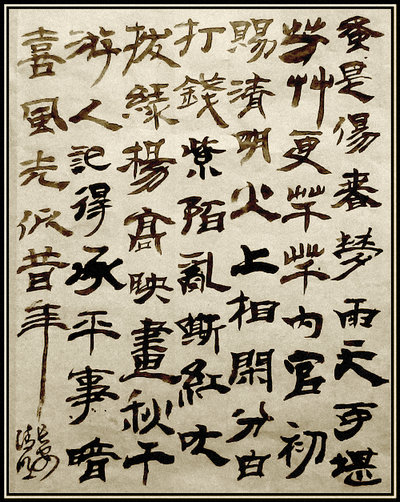 蚤是傷春夢雨天可堪
芳艸更芊芊內官初
賜清明火上相閑分白
打錢紫陌亂嘶紅叱
撥綠楊高映畫秋千
游人記得承平事暗
喜風光似昔年
長安
清明